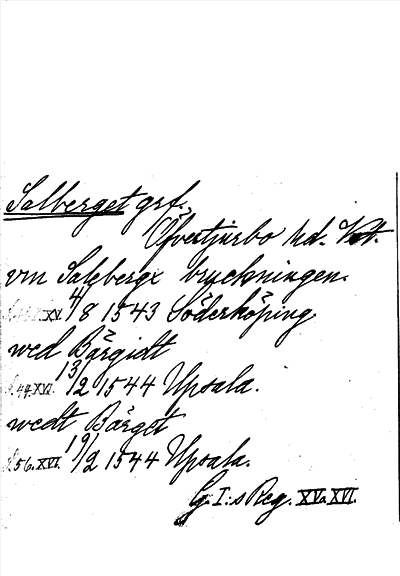 Salberget grf.,
Öfvertjurbo hd. Vtl.
vm Salebergx bruckningen.
XV. 4/8 1543 Söderköping
wed Bärgidt
s. 44. XVI. 13/2 1544 Upsala.
wedt Bärget
s. 56. XVI. 19/2 1544 Upsala.
G. I:s Reg. XV o. XVI.